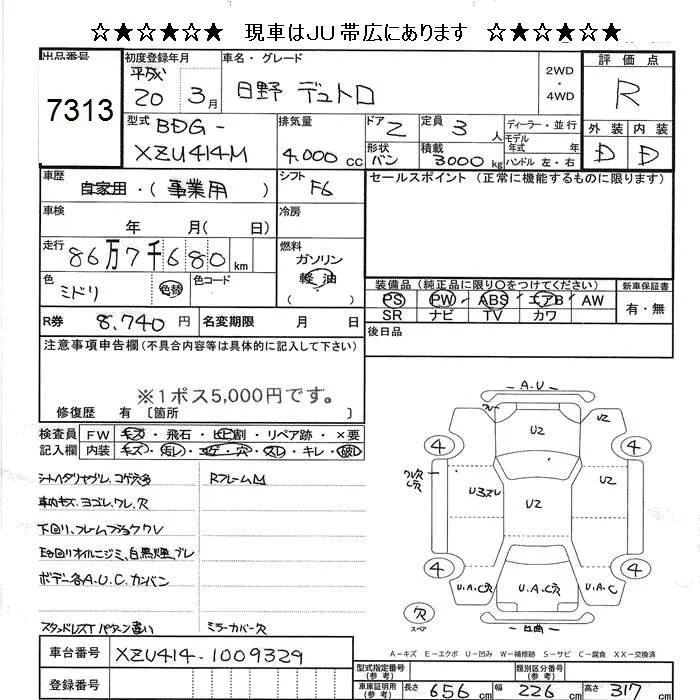 ☆★☆★☆★ 現車はJU帯広にあります ☆★☆★☆★
出品番号
7313
初度登録年月
平成 20 3月
車名・グレード
日野 デュトロ
2WD
・
4WD
評価点
R
型式 BDG-
XZU414M
排気量
4.000cc
ドア 2
形状 バン
定員 3人
積載 3000kg
ディーラー・並行
モデル
年式 年
ハンドル 左・右
外装 内装
D D
車歴
自家用・(事業用)
シフト F6
セールスポイント (正常に機能するものに限ります)
車検
年 月( 日)
冷房
走行
86万7千680km
燃料
ガソリン
軽油
( )
色
ミドリ 色替
色コード
装備品 (純正品に限り○をつけてください)
PS PW ABS エアB AW
SR ナビ TV カワ
新車保証書
有・無
R券 8.740円
名変期限 月 日
後日品
注意事項申告欄(不具合内容等は具体的に記入して下さい)
※1ポス5,000円です。
修復歴 有 〔箇所 〕
検査員
記入欄
FW キズ・飛石・ヒビ割・リペア跡・×要
内装 キズ・汚レ・コゲ・穴・スレ・キレ・破レ
シートヘタリヤブレ、コゲ穴多
RフレームM
車内キズ、ヨゴレ、ワレ、穴
下回リ、フレームフショクワレ
E回リオイルニジミ、白黒煙、ブレ
ボデー各A.U.C.カンバン
スタッドレスTパターン違い
ミラーカバー欠
A.U
U2
U2
4 4
U3スレ
U2
U2
4 4
U.A.C穴
U.A.C穴
U.A.C
欠
スペア
A−キズ E−エクボ U−凹み W−補修跡 S−サビ C−腐食 XX−交換済
車台番号
XZU414-1009329
登録番号
型式指定番号
(参考)
類別区分番号
(参考)
車庫証明用
(参考)
長さ 656cm
幅 226cm
高さ 317cm